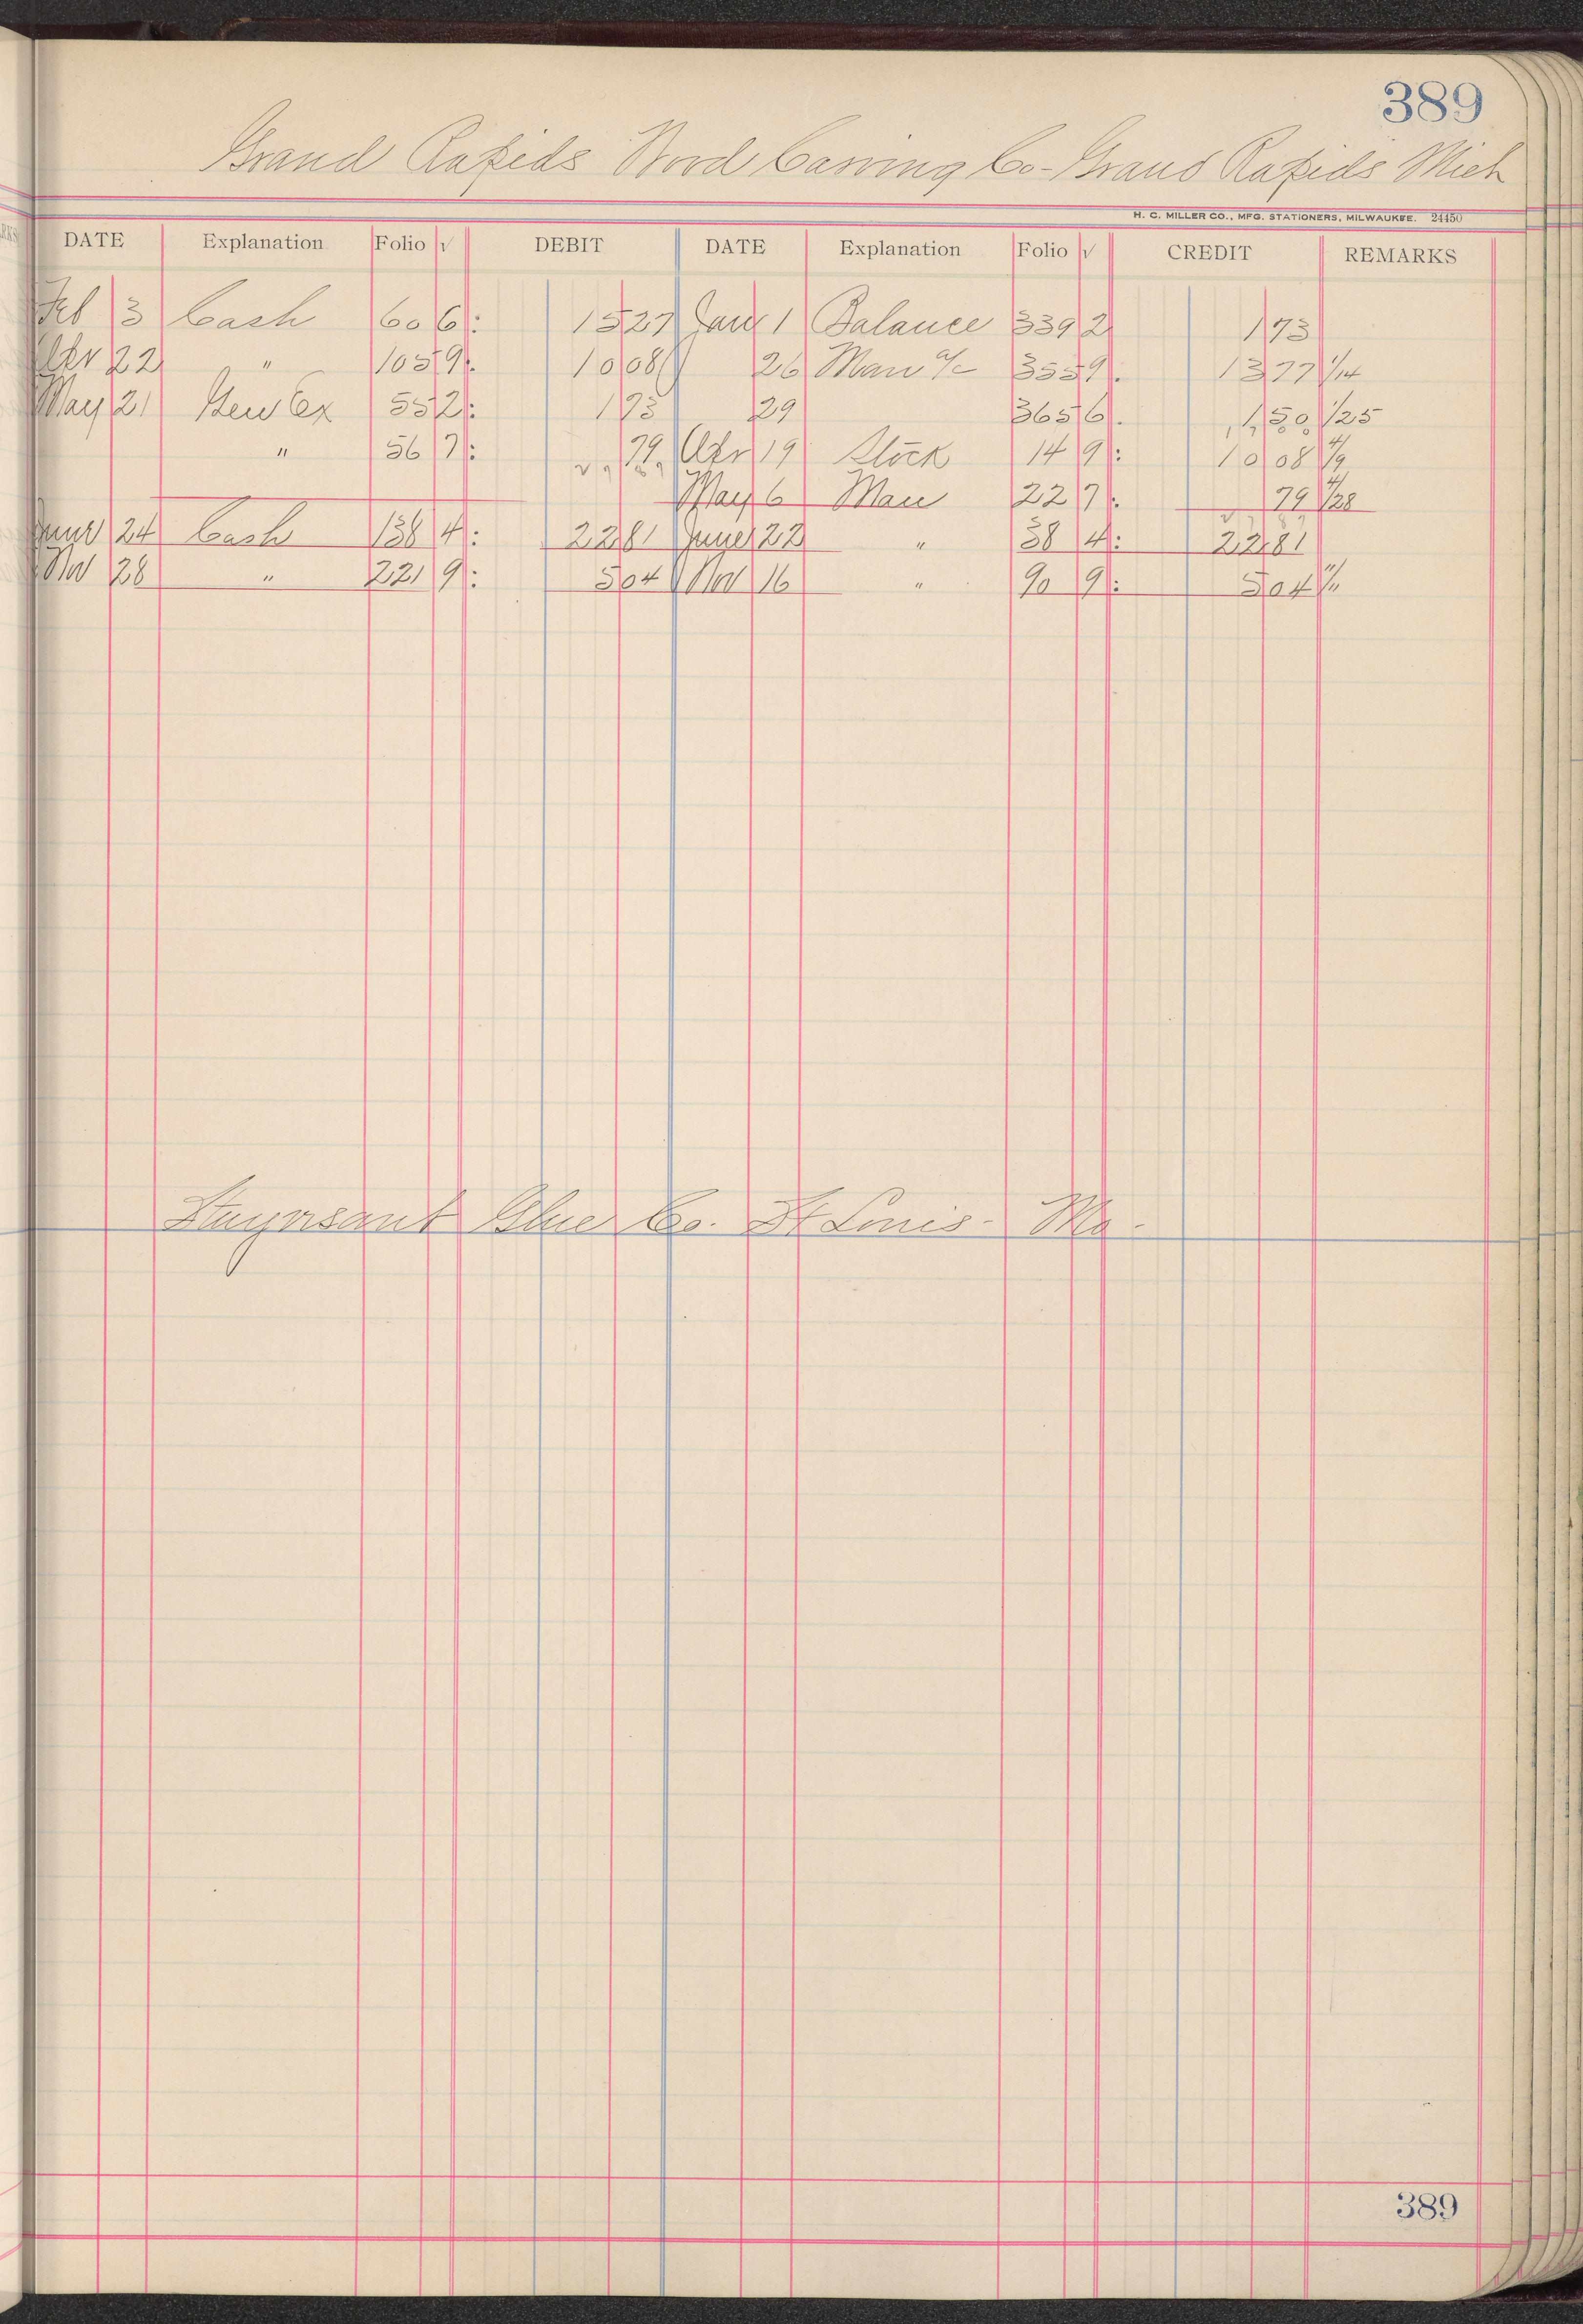 389
Grand Rapids Wood Carving Co - Grand Rapids Mich
H. C. MILLER CO., MFG. STATIONERS, MILWAUKEE. 24450
DATE Explanation Folio √ DEBIT DATE Explanation Folio √ CREDIT REMARKS
Feb 3 Cash 60 6: 15 27 Jan 1 Balance 339 2 1 73
Apr 22 " 105 9: 10 08 26 Man a/c 355 9: 13 77 1/14
May 21 Gen Ex 55 2: 1 73 29 365 6. 1 50 1/25
" 56 7: 79 Apr 19 Stock 14 9: 10 08 4/9
May 6 Man 22 7: 79 4/28
June 24 Cash 138 4: 22 81 June 22 " 38 4: 22 81
Nov 28 " 221 9: 5 04 Nov 16 " 90 9: 5 04 11/11
Stuyvsant Glue Co. St Louis - Mo -
389